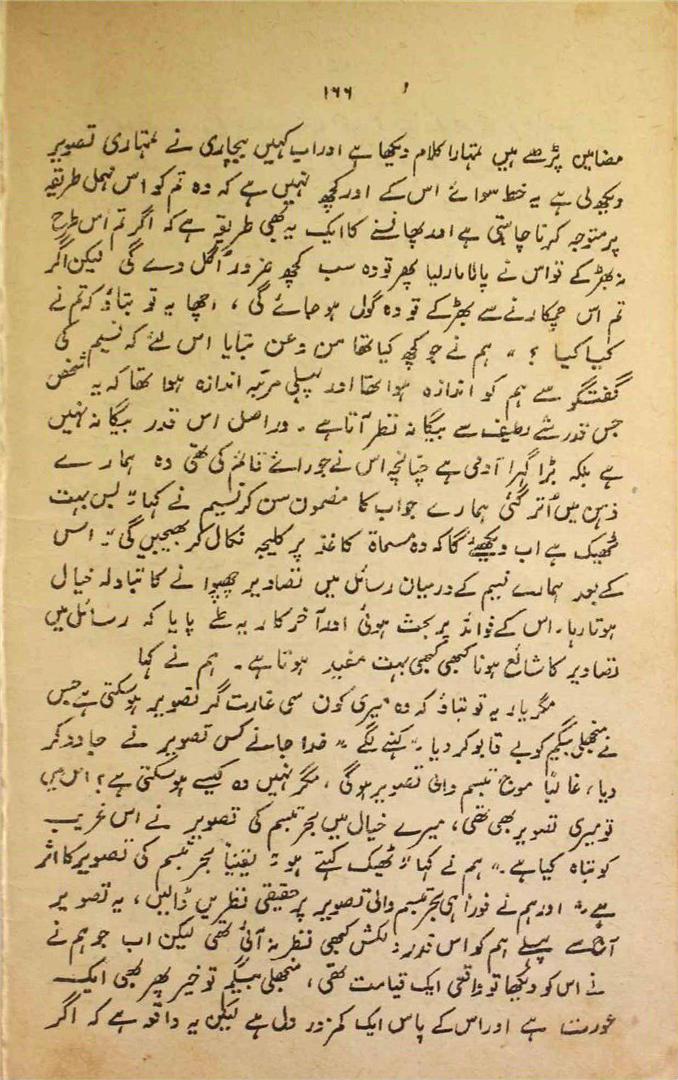 ۱۶۶
مضامین پڑھے ہیں تمہارا کلام دیکھا ہے اور اب کہیں بیچاری نے تمہاری تصویر
دیکھ لی ہے یہ خط سوائے اس کے اور کچھ نہیں ہے کہ وہ تم کو اس مہمل طریقہ
پر متوجہ کرنا چاہتی ہے اور پھانسنے کا ایک یہ بھی طریقہ ہے کہ اگر تم اس طرح
نہ بھڑکے تو اس نے پالا مار لیا پھر تو وہ سب کچھ ضرور اُگل دے گی لیکن اگر
تم اس چمکارنے سے بھڑکے تو وہ گول ہو جائے گی ، اچھا یہ تو بتاؤ کہ تم نے
کیا کیا ؟ " ہم نے جو کچھ کیا تھا من و عن بتایا اس لئے کہ نسیم کی
گفتگو سے ہم کو اندازہ ہوا تھا اور پہلی مرتبہ اندازہ ہوا تھا کہ یہ شخص
جس قدر شے لطیف سے بیگانہ نظر آتا ہے ۔ دراصل اس قدر بیگانہ نہیں
ہے بلکہ بڑا گہرا آدمی ہے چنانچہ اس نے جو رائے قائم کی تھی وہ ہمارے
ذہن میں اُتر گئی ہمارے جواب کا مضمون سن کر نسیم نے کہا " بس بہت
ٹھیک ہے اب دیکھئے گا کہ وہ مسماۃ کاغذ پر کلیجہ نکال کر بھیجیں گی " اس
کے بعد ہمارے نسیم کے درمیان رسائل میں تصاویر چھپوانے کا تبادلہ خیال
ہوتا رہا ۔ اس کے فوائد پر بحث ہوئی اور آخر کار یہ طے پایا کہ رسائل میں
تصاویر کا شائع ہونا کبھی کبھی بہت مفید ہوتا ہے ۔ ہم نے کہا
مگر یار یہ تو بتاؤ کہ وہ میری کون سی غارت گر تصویر ہو سکتی ہے جس
نے منجھلی بیگم کو بے قابو کر دیا " کہنے لگے " خدا جانے کس تصویر نے جادو کر
دیا ، غالباً موج تبسم والی تصویر ہو گی ، مگر نہیں وہ کیسے ہو سکتی ہے ؟ اس میں
تو میری تصویر بھی تھی ، میرے خیال میں بحر تبسم کی تصویر نے اس غریب
کو تباہ کیا ہے ۔" ہم نے کہا " ٹھیک کہتے ہو " یقیناً بحر تبسم کی تصویر کا اثر
ہے ۔" اور ہم نے فوراً ہی بحر تبسم والی تصویر پر حقیقی نظریں ڈالیں ، یہ تصویر
آج سے پہلے ہم کو اس قدر دلکش کبھی نظر نہ آئی تھی لیکن اب جو ہم نے
نے اس کو دیکھا تو واقعی ایک قیامت تھی ، منجھلی بیگم تو خیر پھر بھی ایک
عورت ہے اور اس کے پاس ایک کمزور دل ہے لیکن یہ واقعہ ہے کہ اگر